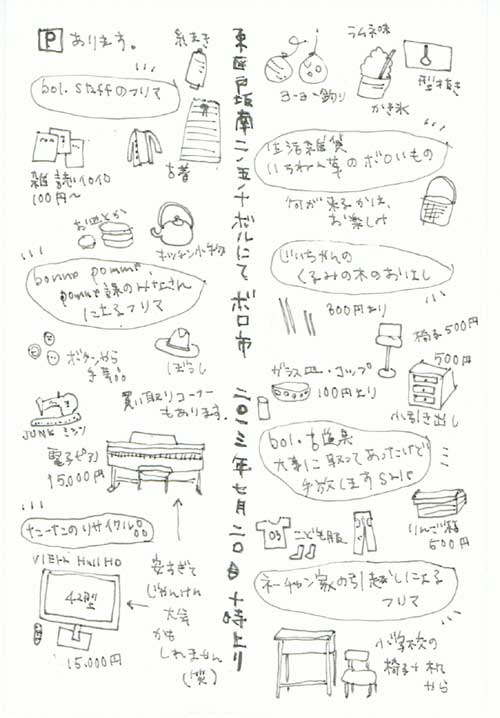 P あります。
糸まき
bol. staffのフリマ
雑誌イロイロ
100円〜
古着
お皿とか
キッチン小物
bonno pommu,
pommu課のみなさん
によるフリマ
ボタンから
手芸品
ぼうし
買い取りコーナー
もあります。
JUNKミシン
電子ピアノ
15,000円
たーたのリサイクル品
42型
15.000円
安すぎて
じゃんけん
大会
かも
しれません
(笑)
東区戸坂南二ノ五ノ十ボルにて ボロ市 二〇一三年七月二〇日 十時より
ヨーヨー釣り
ラムネ味
かき氷
型抜き
生活雑貨
いちわん草のボロいもの
何が来るかは、
お楽しみ
じいちゃんの
くるみの木のおはし
300円より
椅子500円
ガラス皿・コップ
100円より
500円
小引き出し
bol.古道具
大事に取ってあったけど
手放しますSALE
こども服
りんご箱
500円
ネーチャン家の引越しによる
フリマ
小学校の
椅子+机
から